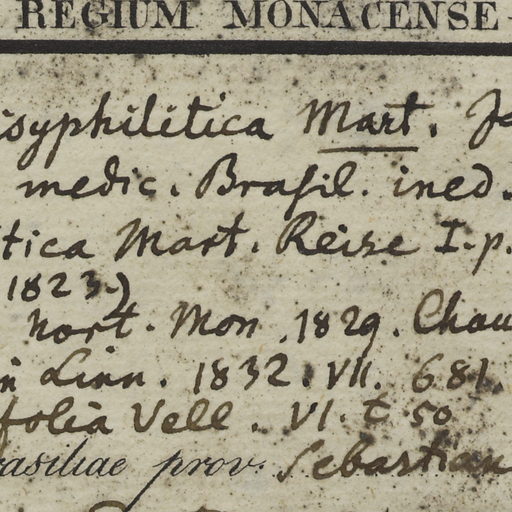 REGIUM MONACENSE
isyphilitica Mart.
medic. Brasil. ined.
tica Mart. Reise I. p.
1823.)
hort. Mon. 1829. Cham
in Linn. 1832. VII. 681.
folia Vell. VI. t 50
rasiliae prov. Sebastian